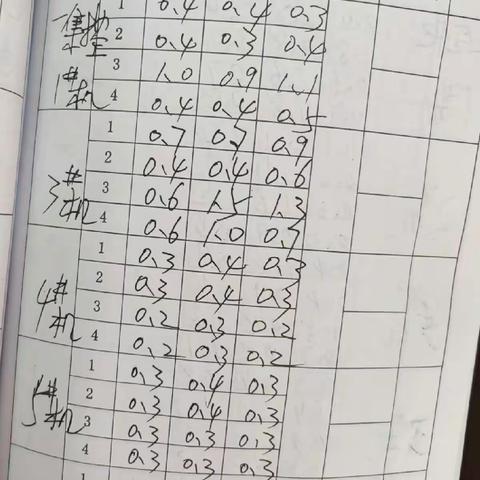 1 0.4 0.4 0.3
2 0.4 0.3 0.4
3 1.0 0.9 1.1
1#机 4 0.4 0.4 0.5
1 0.7 0.7 0.9
2 0.4 0.4 0.6
3#机 3 0.6 1.5 1.3
4 0.6 1.0 0.7
1 0.3 0.4 0.3
2 0.3 0.4 0.3
4#机 3 0.2 0.3 0.2
4 0.2 0.3 0.2
1 0.3 0.4 0.3
2 0.3 0.4 0.3
5#机 3 0.3 0.3 0.3
4 0.3 0.3 0.3
1